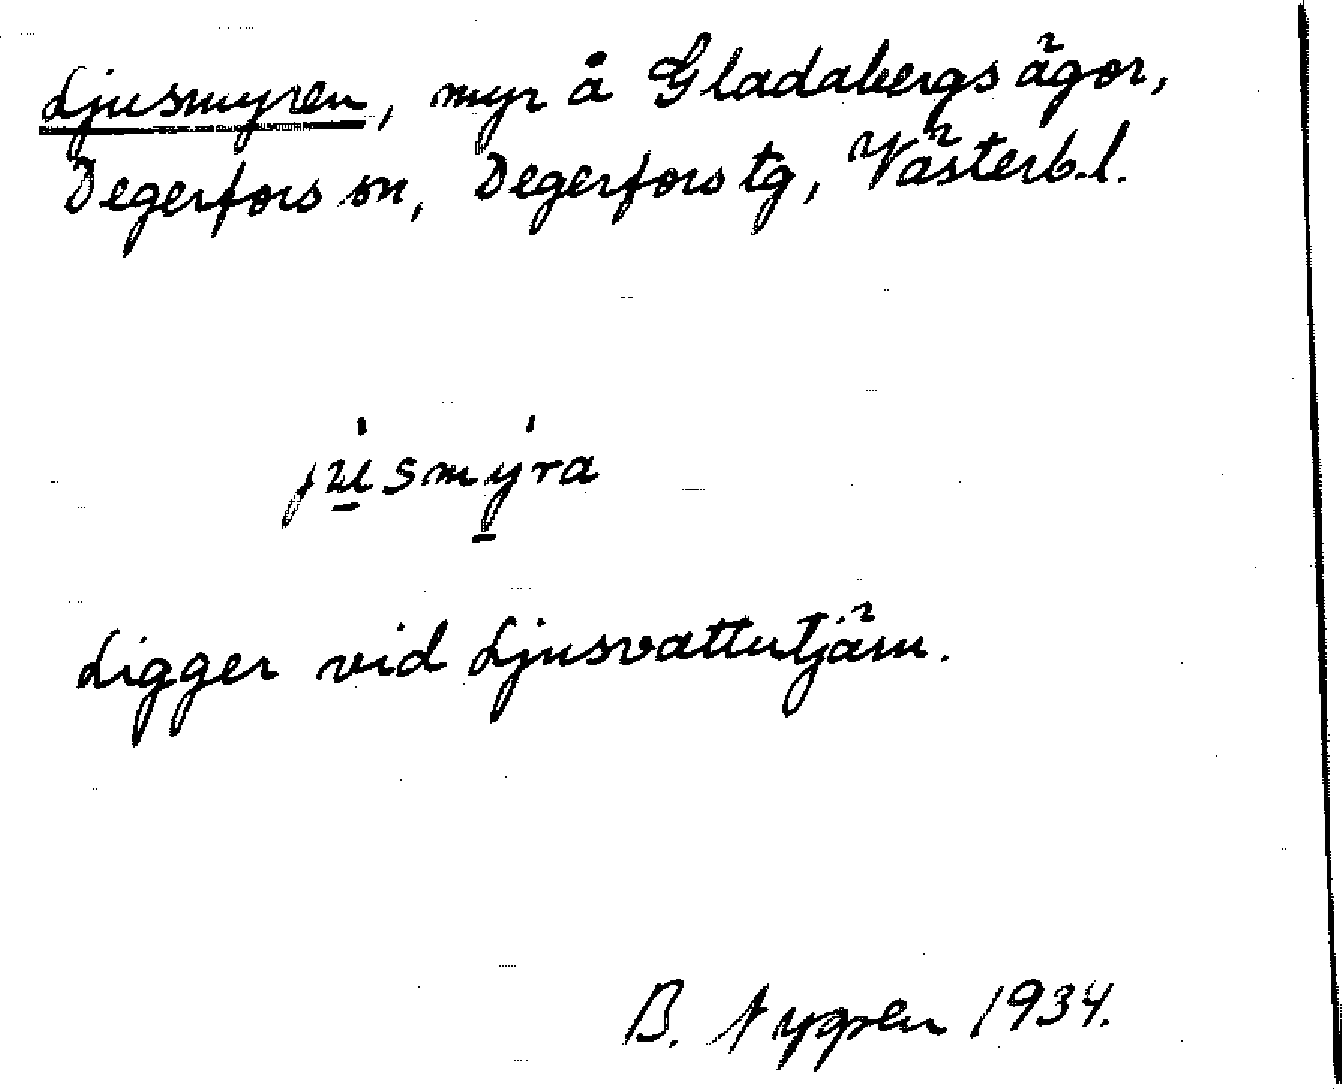 Ljusmyren, myr å Gladabergs ägor,
Degerfors sn, Degerfors tg, Västerb.l.
jụ̄́smý̱ra
Ligger vid Ljusvattutjärn.
B. Nygren 1934.